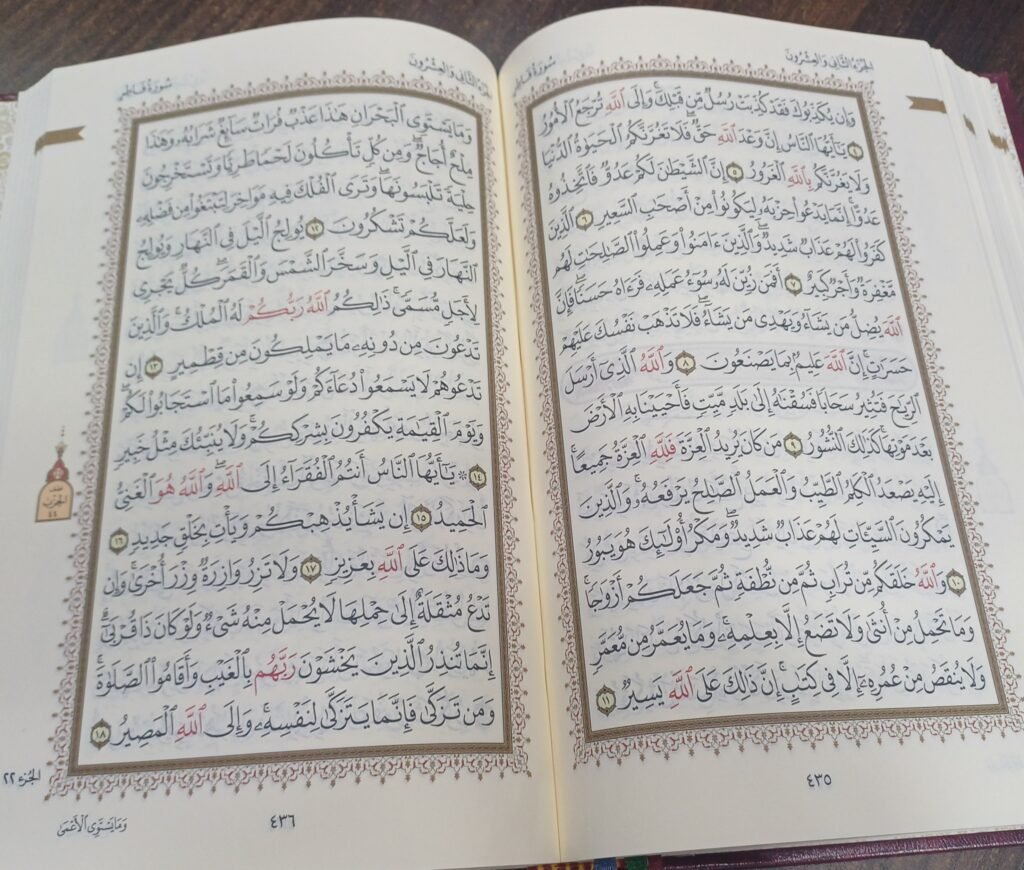 الجزء الثاني والعشرون
سورة فاطر
وَإِن يُكَذِّبُوكَ فَقَدْ كُذِّبَتْ رُسُلٌ مِّن قَبْلِكَ وَإِلَى ٱللَّهِ تُرْجَعُ ٱلْأُمُورُ
٤ يَٰٓأَيُّهَا ٱلنَّاسُ إِنَّ وَعْدَ ٱللَّهِ حَقٌّ فَلَا تَغُرَّنَّكُمُ ٱلْحَيَوٰةُ ٱلدُّنْيَا
وَلَا يَغُرَّنَّكُم بِٱللَّهِ ٱلْغَرُورُ ٥ إِنَّ ٱلشَّيْطَٰنَ لَكُمْ عَدُوٌّ فَٱتَّخِذُوهُ
عَدُوًّا إِنَّمَا يَدْعُوا۟ حِزْبَهُۥ لِيَكُونُوا۟ مِنْ أَصْحَٰبِ ٱلسَّعِيرِ ٦ ٱلَّذِينَ
كَفَرُوا۟ لَهُمْ عَذَابٌ شَدِيدٌ وَٱلَّذِينَ ءَامَنُوا۟ وَعَمِلُوا۟ ٱلصَّٰلِحَٰتِ لَهُم
مَّغْفِرَةٌ وَأَجْرٌ كَبِيرٌ ٧ أَفَمَن زُيِّنَ لَهُۥ سُوٓءُ عَمَلِهِۦ فَرَءَاهُ حَسَنًا فَإِنَّ
ٱللَّهَ يُضِلُّ مَن يَشَآءُ وَيَهْدِى مَن يَشَآءُ فَلَا تَذْهَبْ نَفْسُكَ عَلَيْهِمْ
حَسَرَٰتٍ إِنَّ ٱللَّهَ عَلِيمٌۢ بِمَا يَصْنَعُونَ ٨ وَٱللَّهُ ٱلَّذِىٓ أَرْسَلَ
ٱلرِّيَٰحَ فَتُثِيرُ سَحَابًا فَسُقْنَٰهُ إِلَىٰ بَلَدٍ مَّيِّتٍ فَأَحْيَيْنَا بِهِ ٱلْأَرْضَ
بَعْدَ مَوْتِهَا كَذَٰلِكَ ٱلنُّشُورُ ٩ مَن كَانَ يُرِيدُ ٱلْعِزَّةَ فَلِلَّهِ ٱلْعِزَّةُ جَمِيعًا
إِلَيْهِ يَصْعَدُ ٱلْكَلِمُ ٱلطَّيِّبُ وَٱلْعَمَلُ ٱلصَّٰلِحُ يَرْفَعُهُۥ وَٱلَّذِينَ
يَمْكُرُونَ ٱلسَّيِّـَٔاتِ لَهُمْ عَذَابٌ شَدِيدٌ وَمَكْرُ أُو۟لَٰٓئِكَ هُوَ يَبُورُ
١٠ وَٱللَّهُ خَلَقَكُم مِّن تُرَابٍ ثُمَّ مِن نُّطْفَةٍ ثُمَّ جَعَلَكُمْ أَزْوَٰجًا
وَمَا تَحْمِلُ مِنْ أُنثَىٰ وَلَا تَضَعُ إِلَّا بِعِلْمِهِۦ وَمَا يُعَمَّرُ مِن مُّعَمَّرٍ
وَلَا يُنقَصُ مِنْ عُمُرِهِۦٓ إِلَّا فِى كِتَٰبٍ إِنَّ ذَٰلِكَ عَلَى ٱللَّهِ يَسِيرٌ ١١
٤٣٥
الجزء الثاني والعشرون
سورة فاطر
وَمَا يَسْتَوِى ٱلْبَحْرَانِ هَٰذَا عَذْبٌ فُرَاتٌ سَآئِغٌ شَرَابُهُۥ وَهَٰذَا
مِلْحٌ أُجَاجٌ وَمِن كُلٍّ تَأْكُلُونَ لَحْمًا طَرِيًّا وَتَسْتَخْرِجُونَ
حِلْيَةً تَلْبَسُونَهَا وَتَرَى ٱلْفُلْكَ فِيهِ مَوَاخِرَ لِتَبْتَغُوا۟ مِن فَضْلِهِۦ
وَلَعَلَّكُمْ تَشْكُرُونَ ١٢ يُولِجُ ٱلَّيْلَ فِى ٱلنَّهَارِ وَيُولِجُ
ٱلنَّهَارَ فِى ٱلَّيْلِ وَسَخَّرَ ٱلشَّمْسَ وَٱلْقَمَرَ كُلٌّ يَجْرِى
لِأَجَلٍ مُّسَمًّى ذَٰلِكُمُ ٱللَّهُ رَبُّكُمْ لَهُ ٱلْمُلْكُ وَٱلَّذِينَ
تَدْعُونَ مِن دُونِهِۦ مَا يَمْلِكُونَ مِن قِطْمِيرٍ ١٣ إِن
تَدْعُوهُمْ لَا يَسْمَعُوا۟ دُعَآءَكُمْ وَلَوْ سَمِعُوا۟ مَا ٱسْتَجَابُوا۟ لَكُمْ
وَيَوْمَ ٱلْقِيَٰمَةِ يَكْفُرُونَ بِشِرْكِكُمْ وَلَا يُنَبِّئُكَ مِثْلُ خَبِيرٍ
١٤ ۞ يَٰٓأَيُّهَا ٱلنَّاسُ أَنتُمُ ٱلْفُقَرَآءُ إِلَى ٱللَّهِ وَٱللَّهُ هُوَ ٱلْغَنِىُّ
ٱلْحَمِيدُ ١٥ إِن يَشَأْ يُذْهِبْكُمْ وَيَأْتِ بِخَلْقٍ جَدِيدٍ ١٦
وَمَا ذَٰلِكَ عَلَى ٱللَّهِ بِعَزِيزٍ ١٧ وَلَا تَزِرُ وَازِرَةٌ وِزْرَ أُخْرَىٰ وَإِن
تَدْعُ مُثْقَلَةٌ إِلَىٰ حِمْلِهَا لَا يُحْمَلْ مِنْهُ شَىْءٌ وَلَوْ كَانَ ذَا قُرْبَىٰٓ
إِنَّمَا تُنذِرُ ٱلَّذِينَ يَخْشَوْنَ رَبَّهُم بِٱلْغَيْبِ وَأَقَامُوا۟ ٱلصَّلَوٰةَ
وَمَن تَزَكَّىٰ فَإِنَّمَا يَتَزَكَّىٰ لِنَفْسِهِۦ وَإِلَى ٱللَّهِ ٱلْمَصِيرُ ١٨
نصف
الحزب
٤٤
الجزء ٢٢
٤٣٦
وَمَا يَسْتَوِى ٱلْأَعْمَىٰ